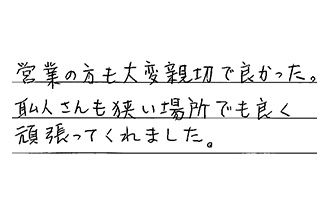 営業の方も大変親切で良かった。
職人さんも狭い場所でも良く
頑張ってくれました。